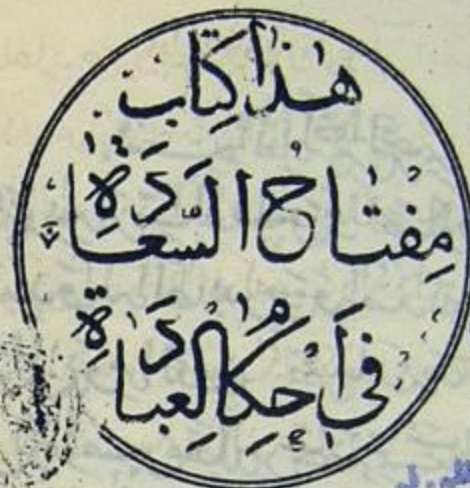 هذا كتاب
مفتاح السعادة
في احكام العبادة